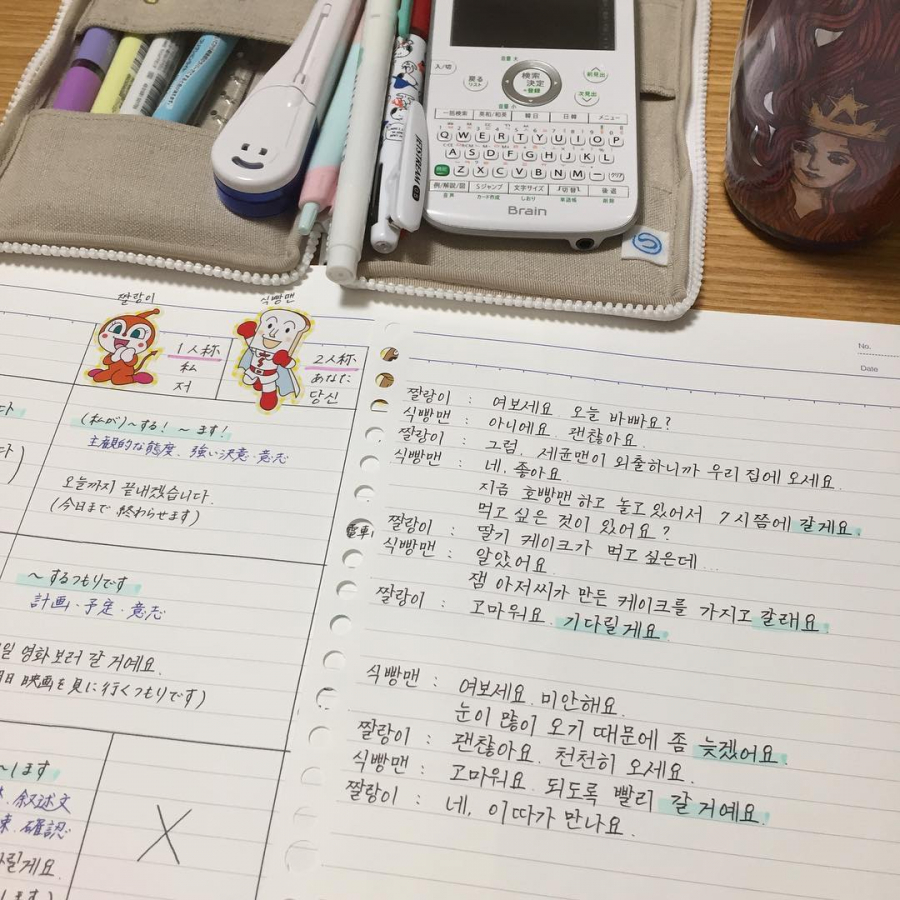 入/切
音量 大
戻る
リスト
検索
決定
+登録
前見出
次見出
音量 小
一括検索 英和/和英 韓日 日韓 メニュー
Q W E R T Y U I O P
A S D F G H J K L
Z X C V B N M - クリア
例/解説/図 Sジャンプ 文字サイズ 切替 後退
音声 カード作成 しおり 単語帳 削除
Brain
JETSTREAM
짤랑이
식빵맨
1人称
私
저
2人称
あなた
당신
(私が)~する! ~ます!
主観的な態度、強い決意・意志
오늘까지 끝내겠습니다.
(今日まで 終わらせます)
~するつもりです
計画・予定・意志
일 영화 보러 갈 거예요.
日 映画を見に行くつもりです)
~します
叙述文
確認
릴게요.
ます)
電車
No.
Date
짤랑이 : 여보세요 오늘 바빠요?
식빵맨 : 아니에요. 괜찮아요.
짤랑이 : 그럼, 세균맨이 외출하니까 우리 집에 오세요.
식빵맨 : 네, 좋아요.
지금 호빵맨하고 놀고 있어서 7시쯤에 갈게요.
먹고 싶은 것이 있어요?
짤랑이 : 딸기 케이크가 먹고 싶은데...
식빵맨 : 알았어요
잼 아저씨가 만든 케이크를 가지고 갈래요.
짤랑이 : 고마워요. 기다릴게요.
식빵맨 : 여보세요. 미안해요.
눈이 많이 오기 때문에 좀 늦겠어요.
짤랑이 : 괜찮아요. 천천히 오세요.
식빵맨 : 고마워요. 되도록 빨리 갈 거예요.
짤랑이 : 네, 이따가 만나요.